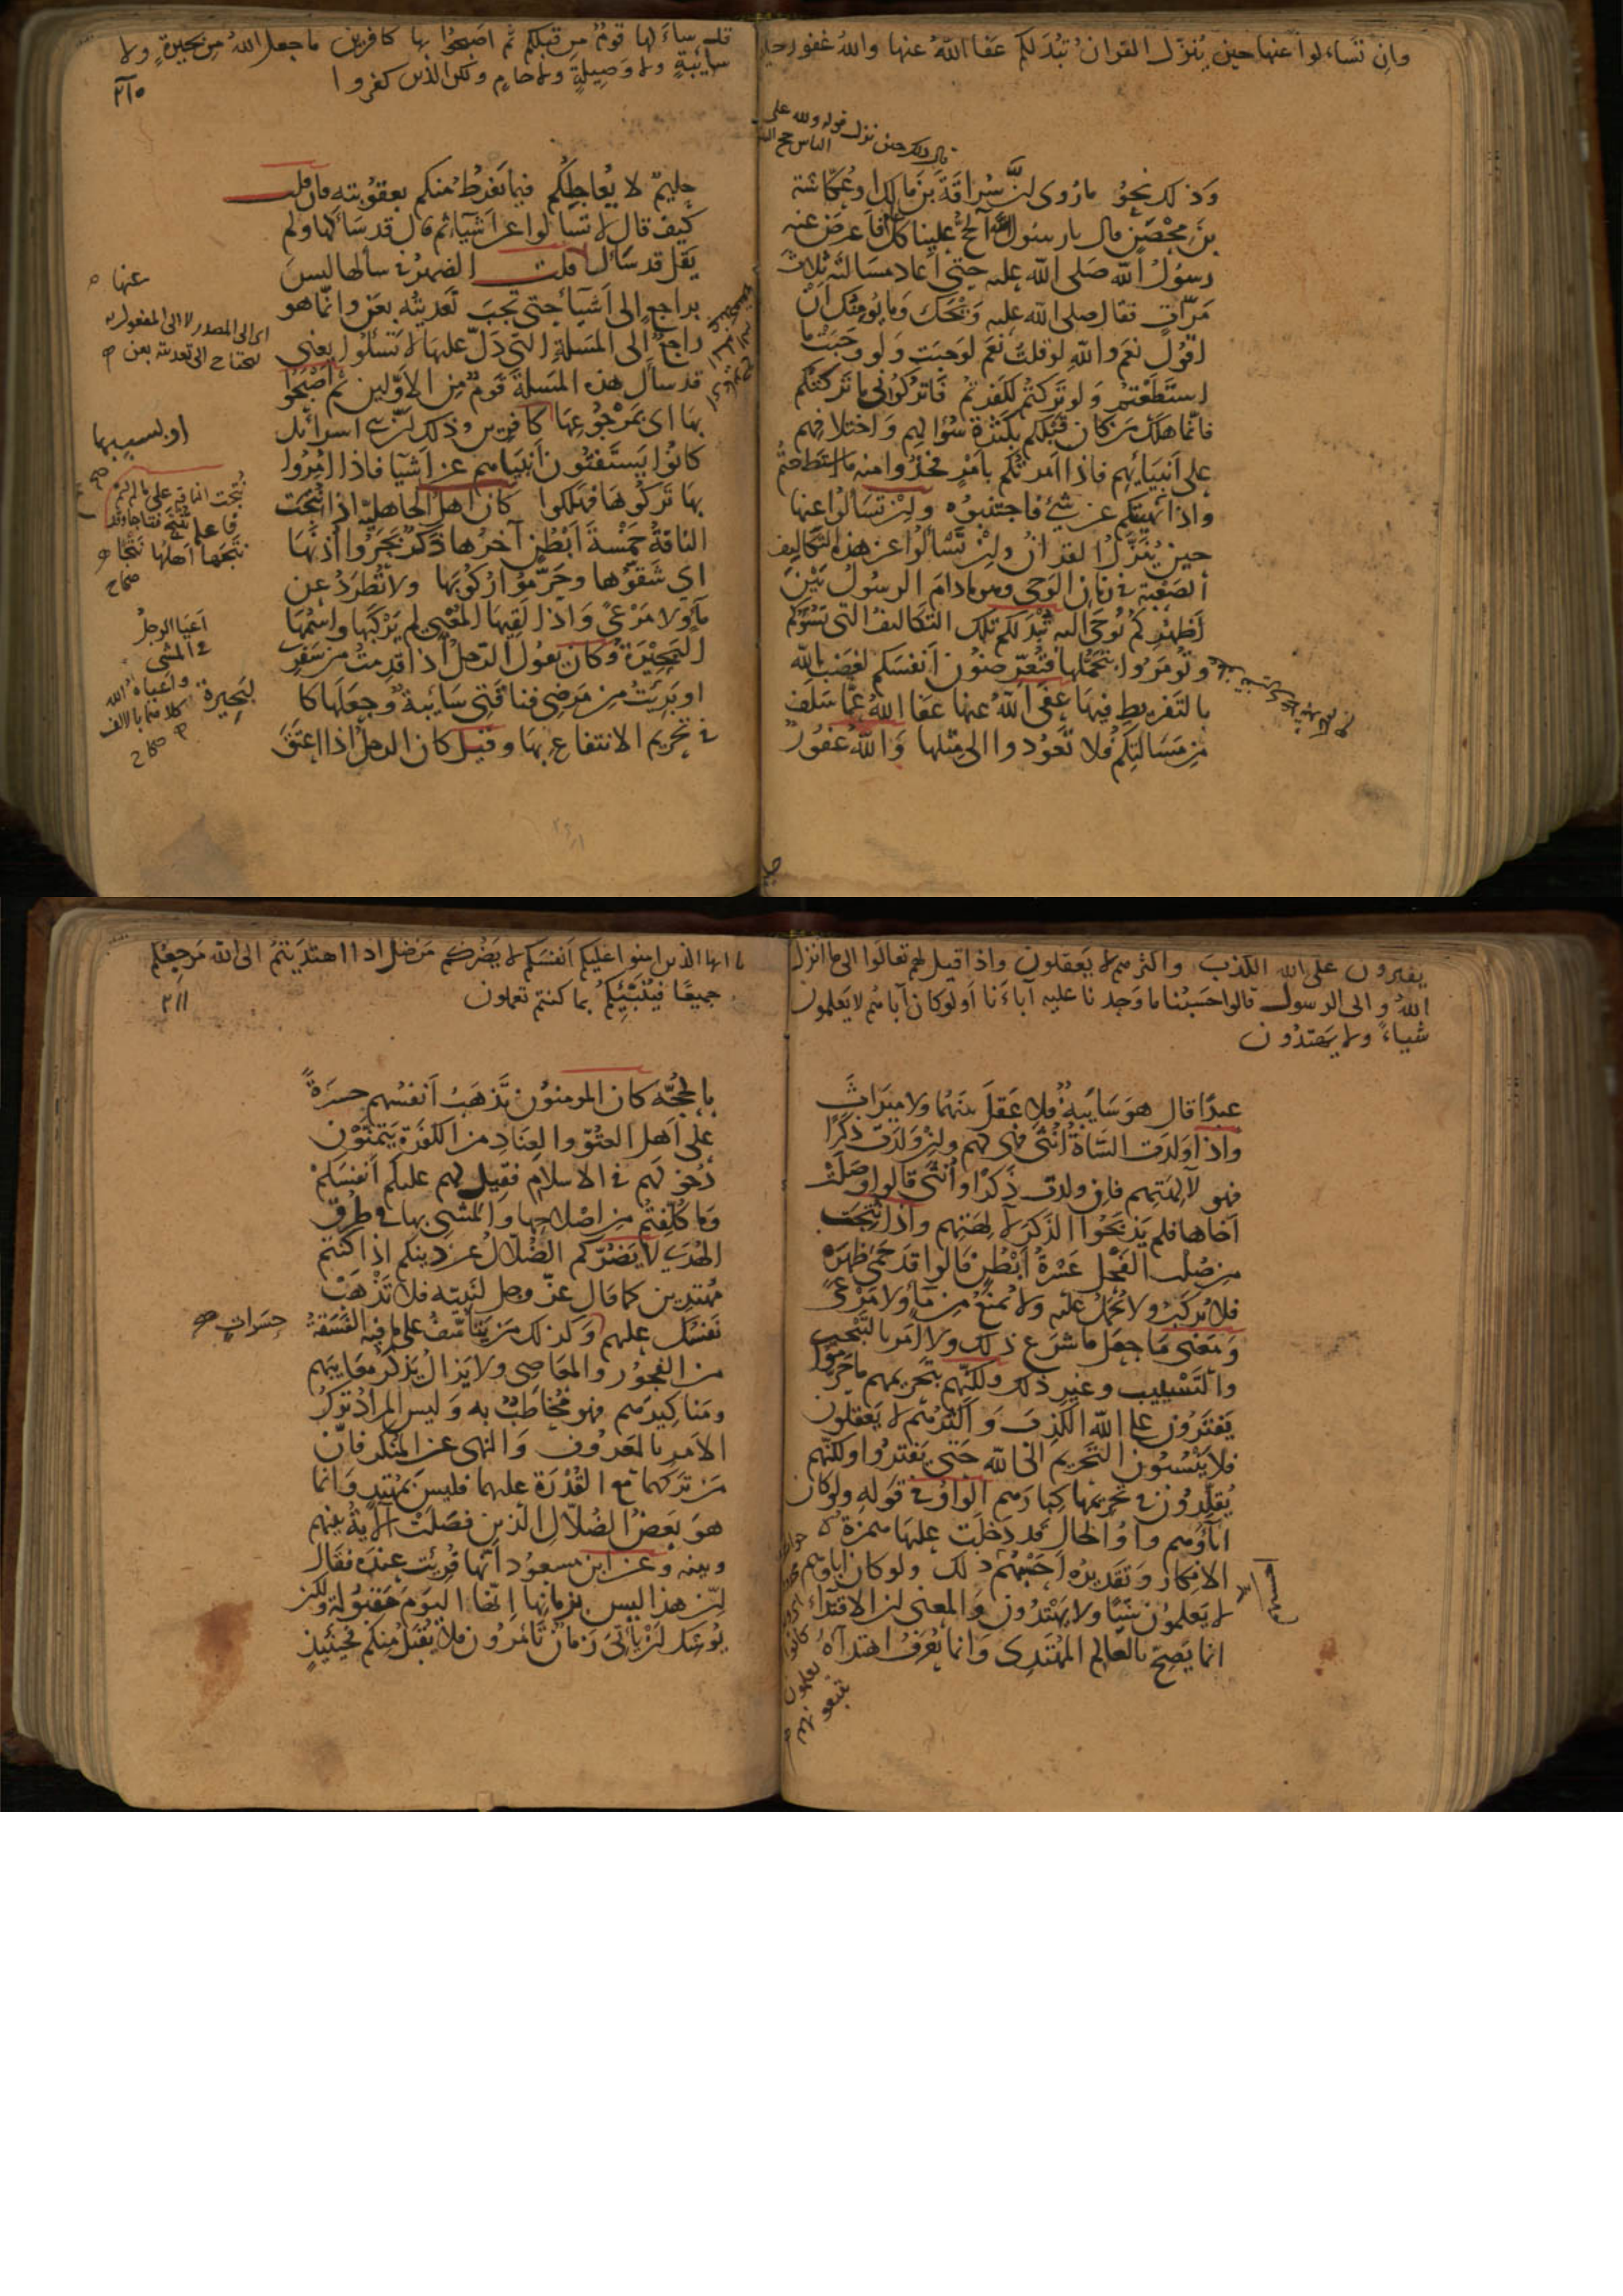 وان تسالوا عنها حين ينزل القران تبد لكم عفا الله عنها والله غفور حليم
قال ذلك حين نزل قوله ولله على
الناس حج البيت
وذلك نحو ما روى ان سراقة بن مالك او عكاشة
بن محصن قال يا رسول الله الحج علينا كل عام فاعرض عنه
رسول الله صلى الله عليه حتى اعاد مسالته ثلاث
مرات فقال صلى الله عليه ويحك وما يومنك ان
اقول نعم والله لو قلت نعم لوجبت ولو وجبت ما
استطعتم ولو تركتم لكفرتم فاتركوني ما تركتكم
فانما هلك من كان قبلكم بكثرة سؤالهم واختلافهم
على انبيائهم فاذا امرتكم بامر فخذوا منه ما استطعتم
واذا نهيتكم عن شيء فاجتنبوه وان تسالوا عنها
حين ينزل القران وان تسألوا عن هذه التكاليف
الصعبة في زمان الوحي وهو ما دام الرسول بين
اظهركم يوحى اليه تبد لكم تلك التكاليف التي تسؤكم
وتومروا بتحملها فتعرضون انفسكم لغضب الله
بالتفريط فيها عفى الله عنها عفا الله عما سلف
من مسالتكم فلا تعودوا الى مثلها والله غفور
قد سالها قوم من قبلكم ثم اصبحوا بها كافرين ما جعل الله من بحيرة ولا
سايبة ولا وصيلة ولا حام ولكن الذين كفروا
٢١٠
حليم لا يعاجلكم فيما يفرط منكم بعقوبته فان قلت
كيف قال لا تسالوا عن اشياء ثم قال قد سالها ولم
يقل قد سأل عنها قلت الضمير في سألها ليس
براجع الى اشياء حتى تجب تعديته بعن وانما هو
راجع الى المسلة التي دل عليها لا تسئلوا يعني
قد سأل هذه المسلة قوم من الاولين ثم اصبحوا
بها اى بمرجوعها كافرين وذلك ان بني اسرائل
كانوا يستفتون انبياهم عن اشيا فاذا امروا
بها تركوها فهلكوا كان اهل الجاهلية اذا نتجت
الناقة خمسة ابطن آخرها ذكر بحروا اذنها
اي شقوها وحرموا ركوبها ولا تطرد عن
ماء ولا مرعى واذا لقيها المعيي لم يركبها واسمها
البحيرة وكان يقول الرجل اذا قدمت من سفر
او بريت من مرضي فناقتي سايبة وجعلها كا
في تحريم الانتفاع بها وقيل كان الرجل اذا اعتق
عنها
اى الى المصدر لا الى المفعول به
او بسببها
نتجت الناقة على ما لم
نتجها اهلها نتجا
صحاح
اعيا الرجل
في المشي
واعياه الله
كلاهما بالالف
صحاح
لبحيرة
يفترون على الله الكذب واكثرهم لا يعقلون واذا قيل لهم تعالوا الى ما انزل
الله والى الرسول قالوا حسبنا ما وجدنا عليه آباءنا اولو كان آباهم لا يعلمون
شياء ولا يهتدون
عبدا قال هو سايبة فلا عقل بينهما ولا ميراث
واذا ولدت الشاة انثى فهي لهم وان ولدت ذكرا
فهو لآلهتهم فان ولدت ذكرا وانثى قالوا وصلت
اخاها فلم يذبحوا الذكر لآلهتهم واذا نتجت
من صلب الفحل عشرة ابطن قالوا قد حمى ظهره
فلا يركب ولا يحمل عليه ولا يمنع من ماء ولا مرعى
ومعنى ما جعل ما شرع ذلك ولا امر بالتبحير
والتسييب وغير ذلك ولكنهم بتحريمهم ما حرموا
يفترون على الله الكذب واكثرهم لا يعقلون
فلا ينسبون التحريم الى الله حتى يفتروا ولكنهم
يقلدون في تحريمها كبارهم الواو في قوله ولو كان
اباؤهم واو الحال قد دخلت عليها همزة
الانكار وتقديره احسبهم ذلك ولو كان اباوهم
لا يعلمون شيئا ولا يهتدون والمعنى ان الاقتداء
انما يصح بالعالم المهتدى وانما يعرف اهتداؤه
يا ايها الذين امنوا عليكم انفسكم لا يضركم من ضل اذا اهتديتم الى الله مرجعكم
جميعا فينبئكم بما كنتم تعملون
٢١١
بالحجة كان المومنون تذهب انفسهم حسرة
على اهل العتو والعناد من الكفرة يتمنون
دخولهم في الاسلام فقيل لهم عليكم انفسكم
وما كلفتم من اصلاحها والمشي بها في طرق
الهدى لا يضركم الضلال عن دينكم اذا كنتم
مهتدين كما قال عز وجل لنبيه فلا تذهب
نفسك عليهم وكذلك من يتاسف على ما فيه الفسقة
من الفجور والمعاصي ولا يزال يذكر معايبهم
ومناكيرهم فهو مخاطب به وليس المراد ترك
الامر بالمعروف والنهى عن المنكر فان
من تركهما مع القدرة عليهما فليس بمهتد وانما
هو بعض الضلال الذين فصلت الاية بينهم
وبينه وعن ابن مسعود انها قرئت عنده فقال
ان هذا ليس بزمانها انها اليوم مقبولة ولكن
يوشك ان ياتى زمان تامرون فلا يقبل منكم فحينئذ
حسرات